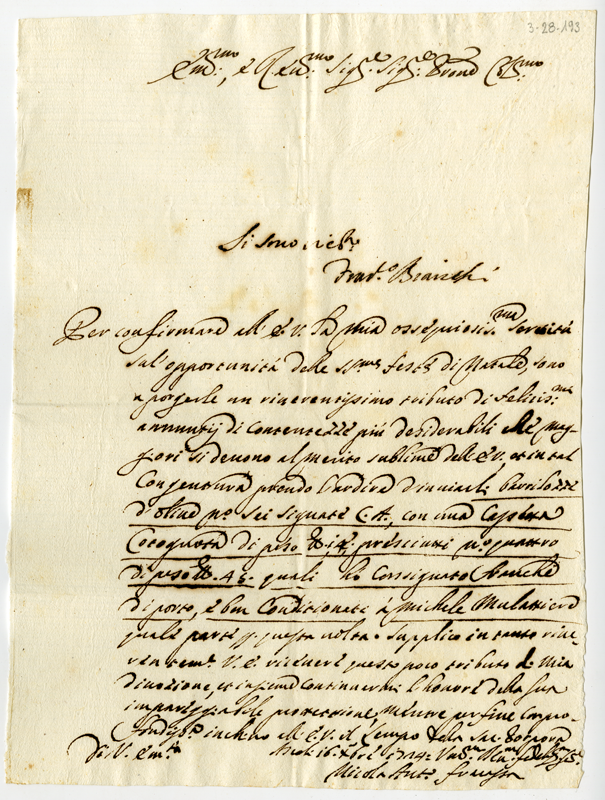 3-28-193
Em.mo, e R.mo Sig.e Sig.e Pron.e Col.mo
Si sono
Bianchi
Per confirmare all' E.V. la mia ossequiosis.ma servitù
sul'opportunità delle S.me feste di Natale, sono
a porgerle un riverentissimo tributo di felicis.mi
annuntij di contentezze più desiderabili che mag-
giori si devono al merito sublime dell'E.V. et in tal
Congentura prendo l'ardire d'inviarli barilozze
d'olive n.o sei signate C.A, con una
di peso presciutti n.o quattro
di peso 45. quali ho Consignato franche
di porto, e ben Conditionate à Michele Mulattiere
quale parte p. questa volta. Supplico in tanto
V.E. ricevere questo poco tributo di mia
divozione, et insieme continuarmi l'honore della sua
impareggiabile protezzione, mentre per fine
inchino all'E.V. el lempo della Sac. Porpora
Di V. Em.za
16. 1714.
Nicola Ant.o